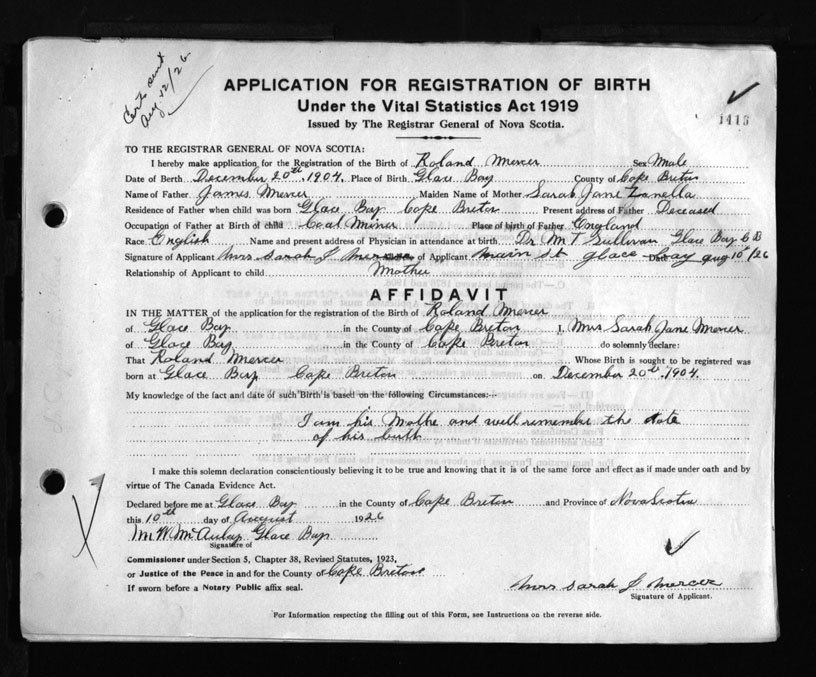 Cert sent
Aug 12/26
APPLICATION FOR REGISTRATION OF BIRTH
Under the Vital Statistics Act 1919
Issued by The Registrar General of Nova Scotia.
1413
TO THE REGISTRAR GENERAL OF NOVA SCOTIA:
I hereby make application for the Registration of the Birth of Roland Mercer Sex Male
Date of Birth December 20th, 1904. Place of Birth Glace Bay County of Cape Breton
Name of Father James Mercer Maiden Name of Mother Sarah Jane Zanella
Residence of Father when child was born Glace Bay Cape Breton Present address of Father Deceased
Occupation of Father at Birth of child Coal Miner Place of birth of Father England
Race English Name and present address of Physician in attendance at birth Dr M T Sullivan Glace Bay C B
Signature of Applicant Mrs Sarah J Mercer of Applicant Main st glace bay Date aug 10th/26
Relationship of Applicant to child Mother
AFFIDAVIT
IN THE MATTER of the application for the registration of the Birth of Roland Mercer
of Glace Bay in the County of Cape Breton I, Mrs Sarah Jane Mercer
of Glace Bay in the County of Cape Breton do solemnly declare:
That Roland Mercer Whose Birth is sought to be registered was
born at Glace Bay Cape Breton on December 20th, 1904.
My knowledge of the fact and date of such Birth is based on the following Circumstances:—
I am his Mothe and well remember the date
of his birth
I make this solemn declaration conscientiously believing it to be true and knowing that it is of the same force and effect as if made under oath and by
virtue of The Canada Evidence Act.
Declared before me at Glace Bay in the County of Cape Breton and Province of Nova Scotia
this 10th day of August 1926
Wm W McAulay Glace Bay
Signature of
Commissioner under Section 5, Chapter 38, Revised Statutes, 1923,
or Justice of the Peace in and for the County of Cape Breton
If sworn before a Notary Public affix seal.
Mrs Sarah J Mercer
Signature of Applicant.
For Information respecting the filling out of this Form, see Instructions on the reverse side.